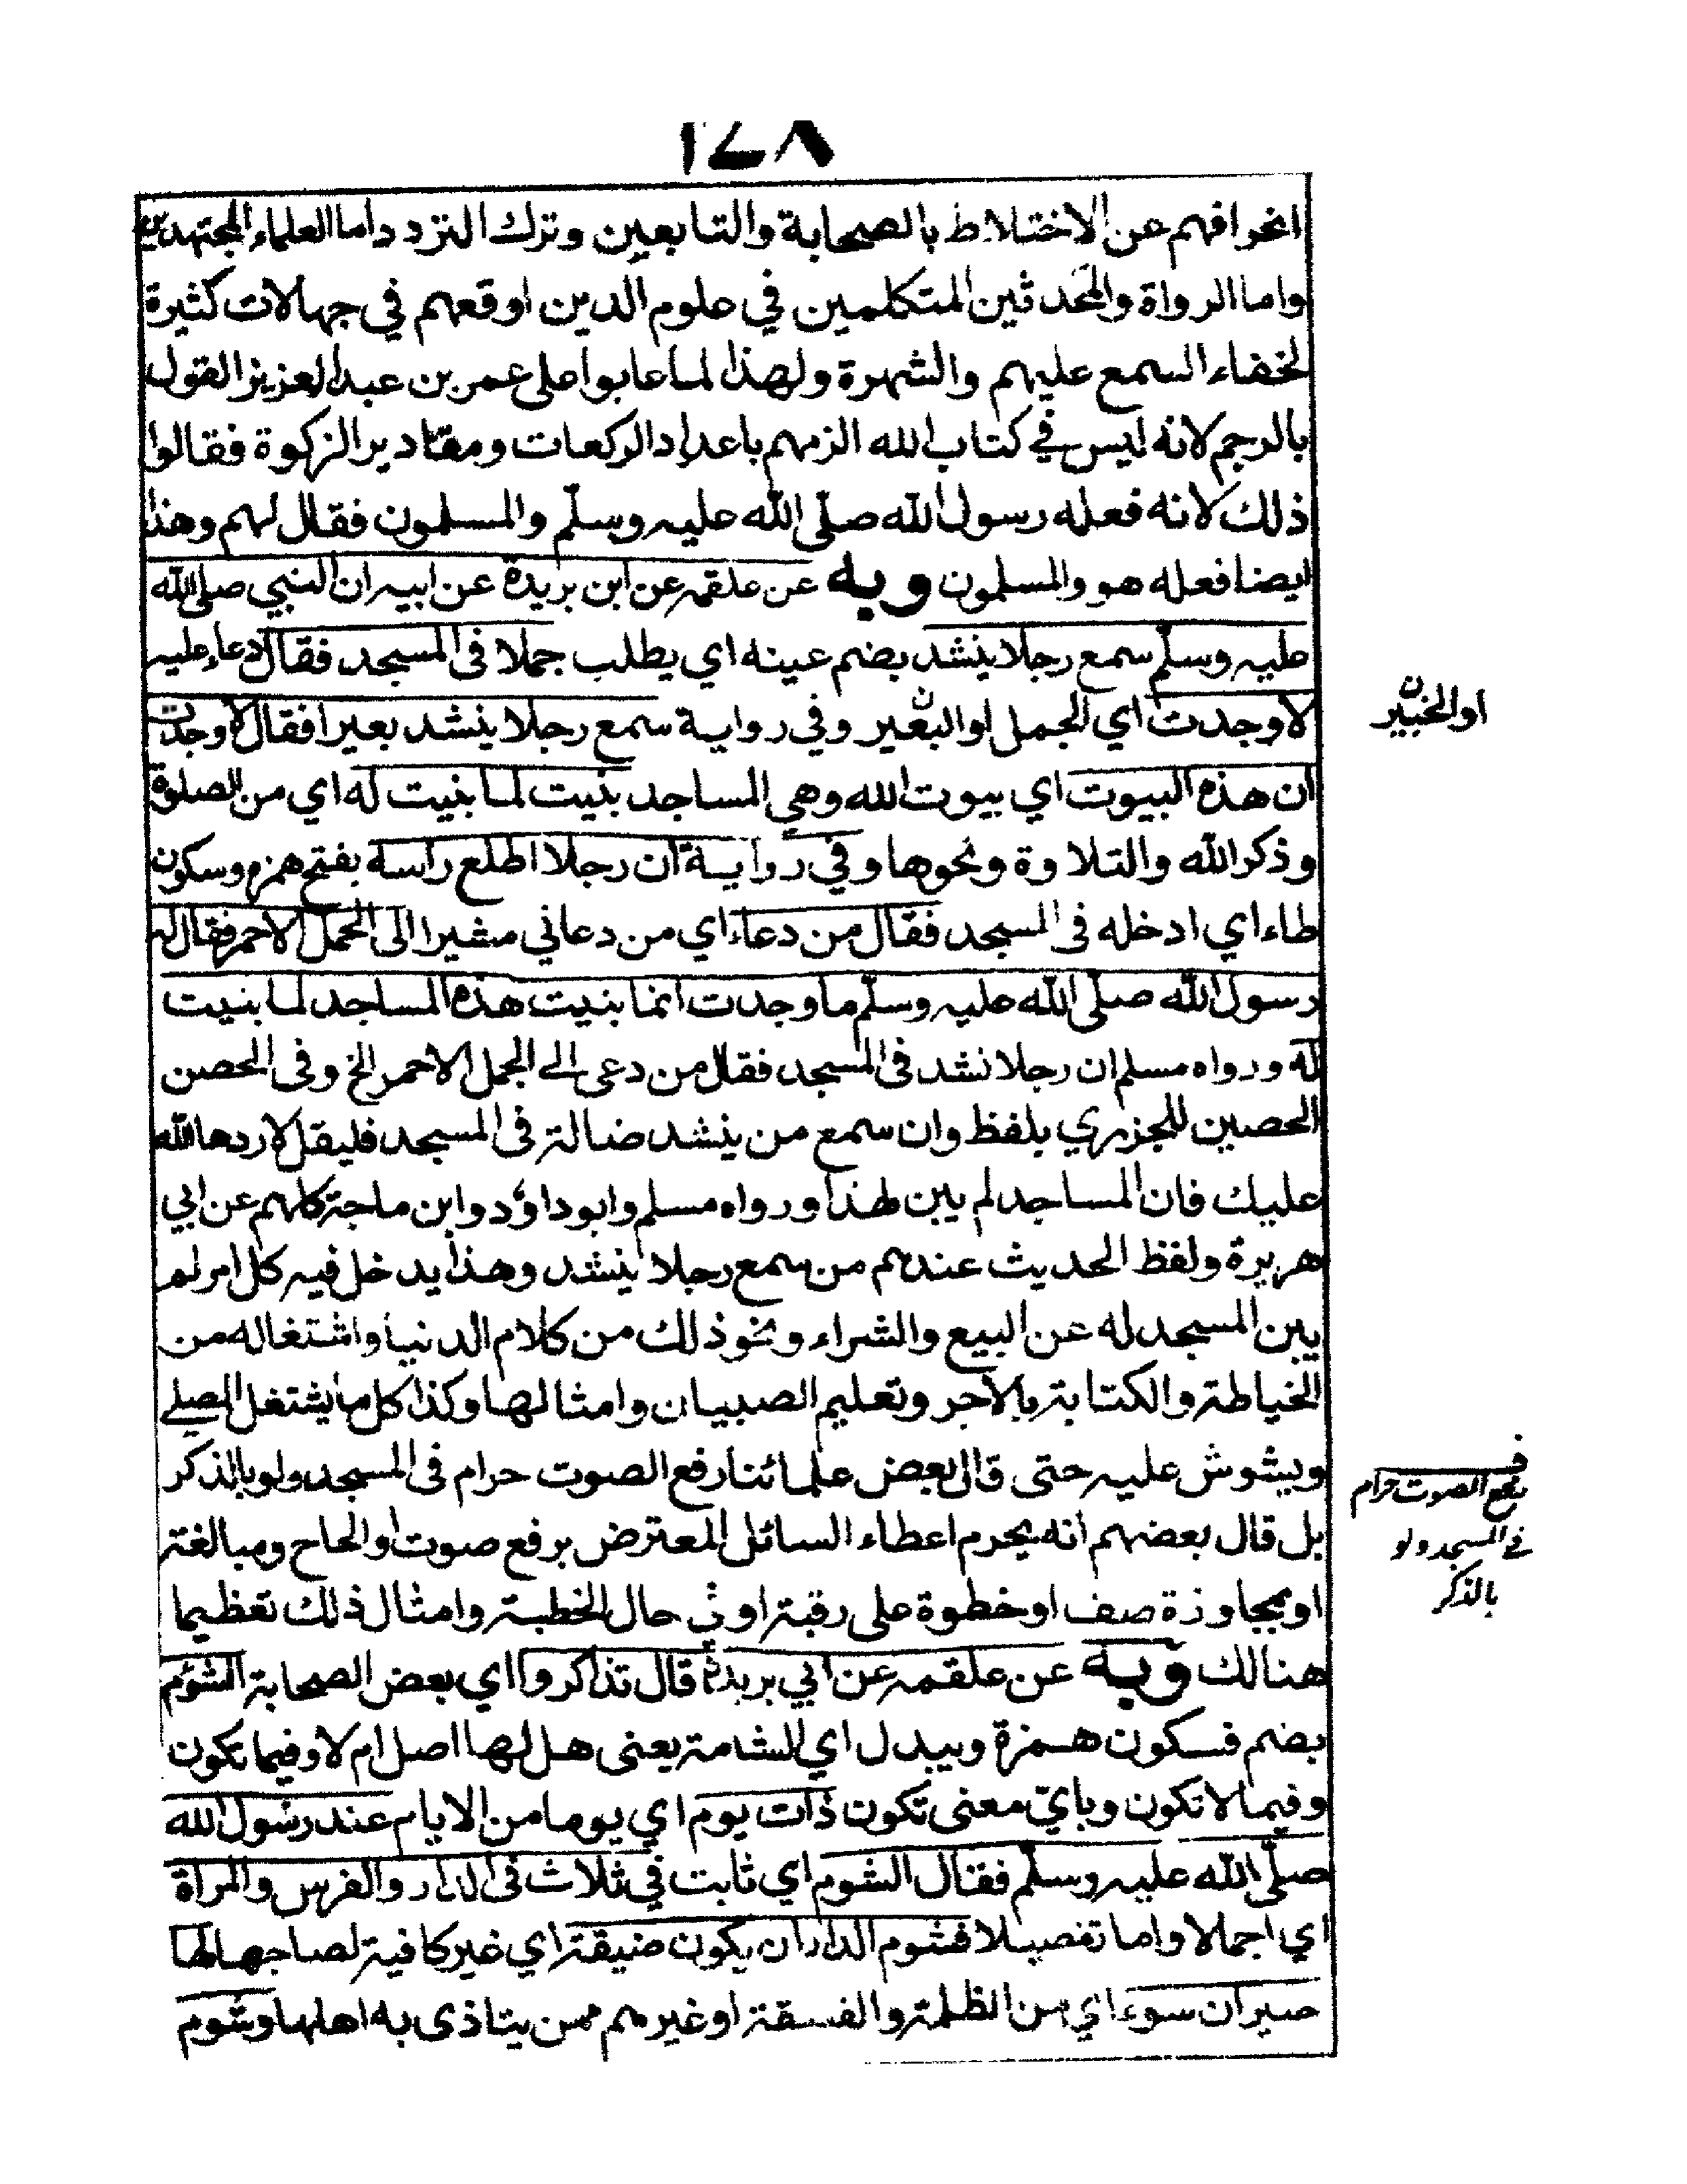 ١٤٨
انحرافهم عن الاختلاط بالصحابة والتابعين وترك التردد داما العلماء المجتهدين
واما الرواة والمحدثين المتكلمين في علوم الدين اوقعهم في جهالات كثيرة
لخفاء السمع عليهم والشهرة ولهذا لما عابوا على عمر بن عبد العزيز القول
بالرجم لانه ليس في كتاب الله الزمهم باعداد الركعات ومقادير الزكوة فقالوا
ذلك لانه فعله رسول الله صلّى الله عليه وسلّم والمسلمون فقال لهم وهذا
ايضا فعله هو والمسلمون وبه عن علقمه عن ابن بريدة عن ابيه ان النبي صلى الله
عليه وسلّم سمع رجلا ينشد بضم عينه اي يطلب جملا فى المسجد فقال دعاء عليه
لا وجدت اي الجمل او البعير وفي رواية سمع رجلا ينشد بعيرا فقال لا وجدت
او الخبير ن
ان هذه البيوت اي بيوت الله وهي المساجد بنيت لما بنيت له اي من الصلوة
وذكر الله والتلاوة ونحوها وفي رواية ان رجلا اطلع راسه بفتح همزه وسكون
طاء اي ادخله فى المسجد فقال من دعاء اي من دعاني مشيرا الى الجمل الاحمر فقال له
رسول الله صلّى الله عليه وسلّم ما وجدت انما بنيت هذه المساجد لما بنيت
له ورواه مسلم ان رجلا نشد فى المسجد فقال من دعى الى الجمل الاحمر الخ وفى الحصن
الحصين للجزري بلفظ وان سمع من ينشد ضالة فى المسجد فليقل لا ردها الله
عليك فان المساجد لم يبن لهذا ورواه مسلم وابو داؤد وابن ماجة كلهم عن ابي
هريرة ولفظ الحديث عندهم من سمع رجلا ينشد وهذا يدخل فيه كل امر لم
يبن المسجد له عن البيع والشراء ونحو ذلك من كلام الدنيا واشتغاله من
الخياطة والكتابة بالاجر وتعليم الصبيان وامثالها وكذا كل ما يشتغل المصلي
ويشوش عليه حتى قال بعض علمائنا رفع الصوت حرام فى المسجد ولو بالذكر
ف
رفع الصوت حرام
في المسجد ولو
بالذكر
بل قال بعضهم انه يحرم اعطاء السائل المعترض برفع صوت او الحاح ومبالغة
او بمجاوزة صف او خطوة على رقبة او في حال الخطبة وامثال ذلك تعظيما
هنالك وبه عن علقمه عن ابي بريدة قال تذاكروا اي بعض الصحابة الشؤم
بضم فسكون همزة ويبدل اي للشامة يعنى هل لها اصل ام لا وفيما تكون
وفيما لا تكون وباي معنى تكون ذات يوم اي يوما من الايام عند رسول الله
صلّى الله عليه وسلّم فقال الشوم اي ثابت في ثلاث فى الدار والفرس والمراة
اي اجمالا واما تفصيلا فشوم الدار ان يكون ضيقة اي غير كافية لصاحبها لها
جيران سوء اي من الظلمة والفسقة او غيرهم ممن يتاذى به اهلها وشوم